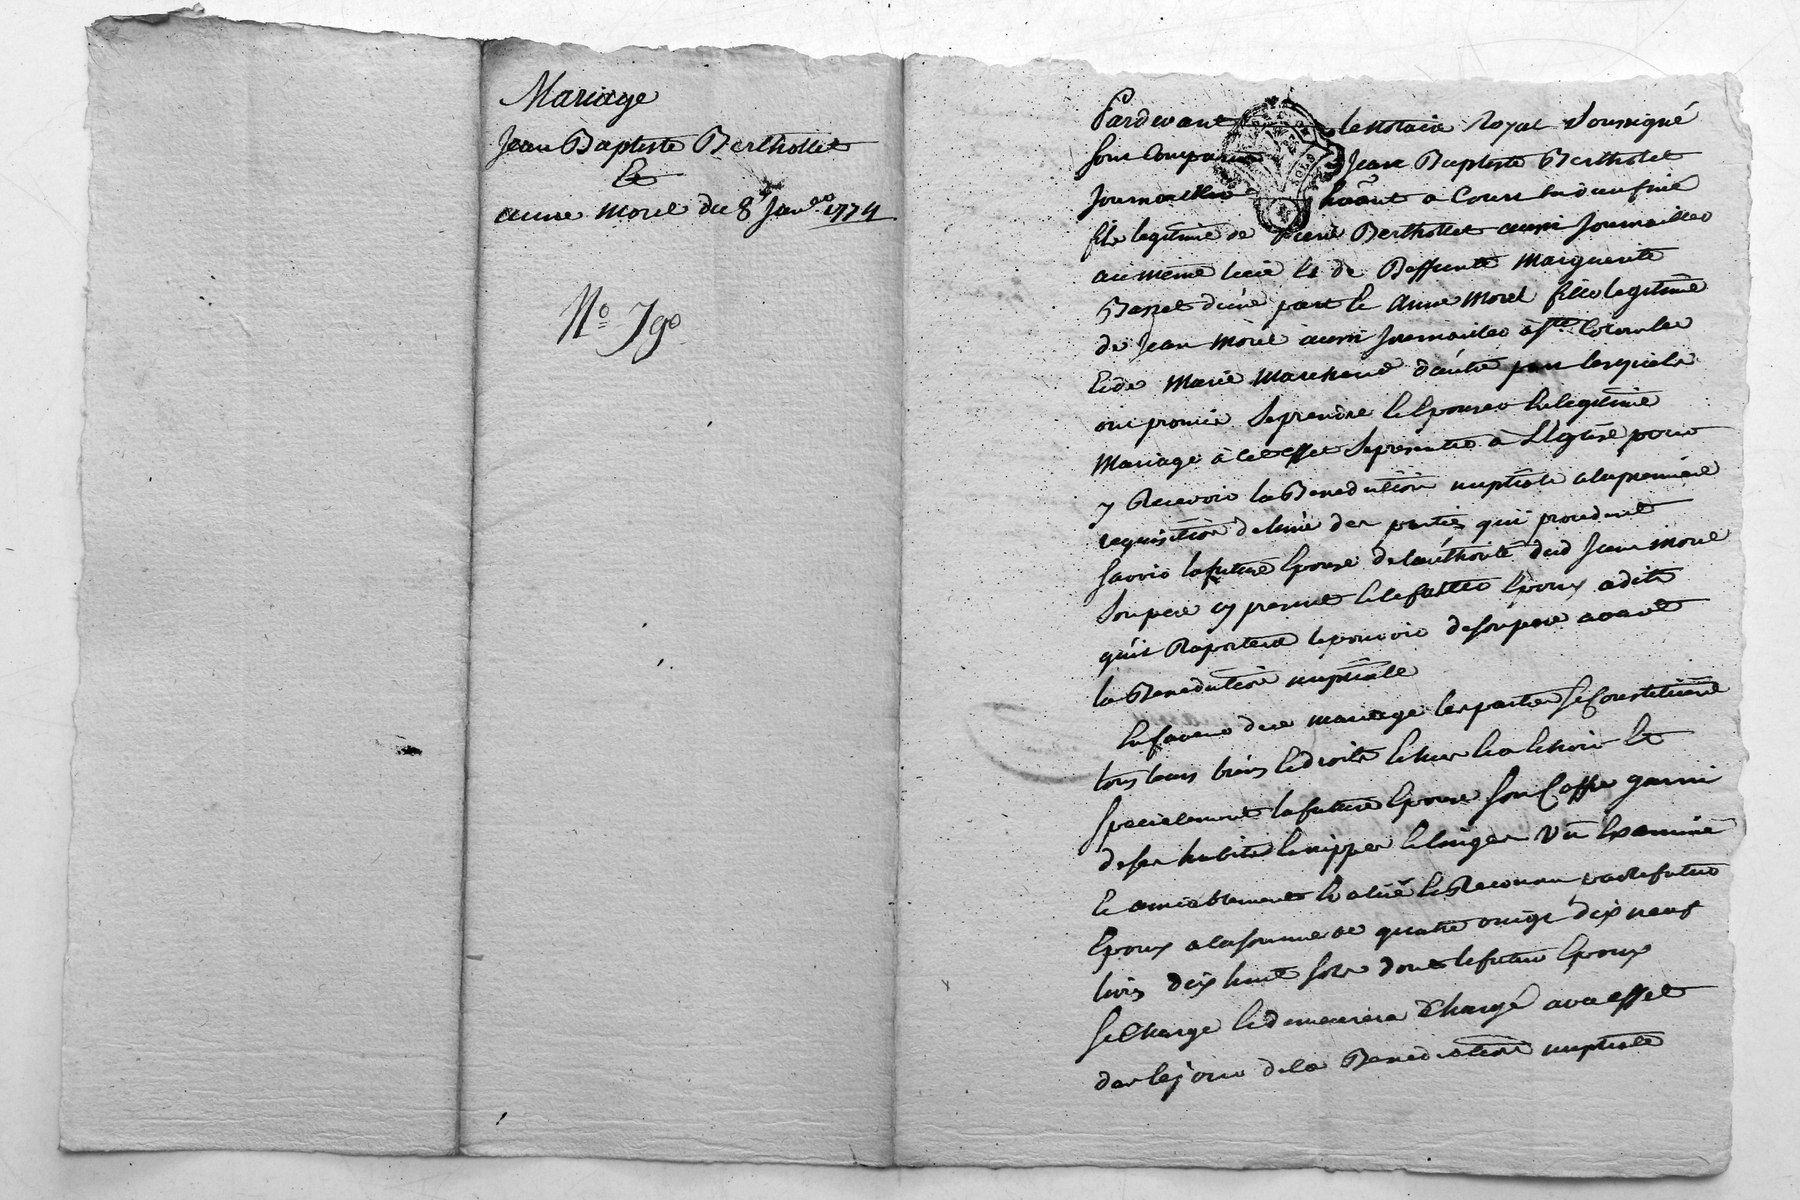 Mariage
Jean Baptiste Berthollet
Et
anne morel du 8e Janer 1774
No 790
Pardevant le notaire Royal Soussigné
sont Comparus Jean Baptiste Berthollet
Journaillier hãant a Cours en daufiné
fils legitime de Pierre Berthollet aussi Journaillier
au même lieu Et de Deffunte Marguerite
d'une part Et Anne Morel fille legitime
de Jean Morel aussi Journaillier a Ste Colombe
Et de Marie Marchand d'autre part lesquels
ont promis se prendre Et Epouser En legitime
Mariage a Cet effet se presenter à L'Eglise pour
y Recevoir la Benediction nuptiale a la premiere
requisition de l'une des parties qui procedent
savoir la future Epouse de l'authorité dud Jean Morel
son pere cy present Et le futteur Epoux a dit
qu'il Raportera le pouvoir de son pere avant
la Benediction nuptiale
En faveur du mariage les parties se Constituent
tous leurs biens Et droits Echus Et a Echoir Et
specialement la future Epouse son Coffre garni
de ses habits Nippes Et linges Vu Examiné
Et amiablement Evalué Et Reconnu par le futur
Epoux a la somme de quatre vingt dix neuf
livres dix huit sols dont le futur Epoux
se Charge Et demeurera Chargé avec effet
des le jour de la Benediction nuptiale